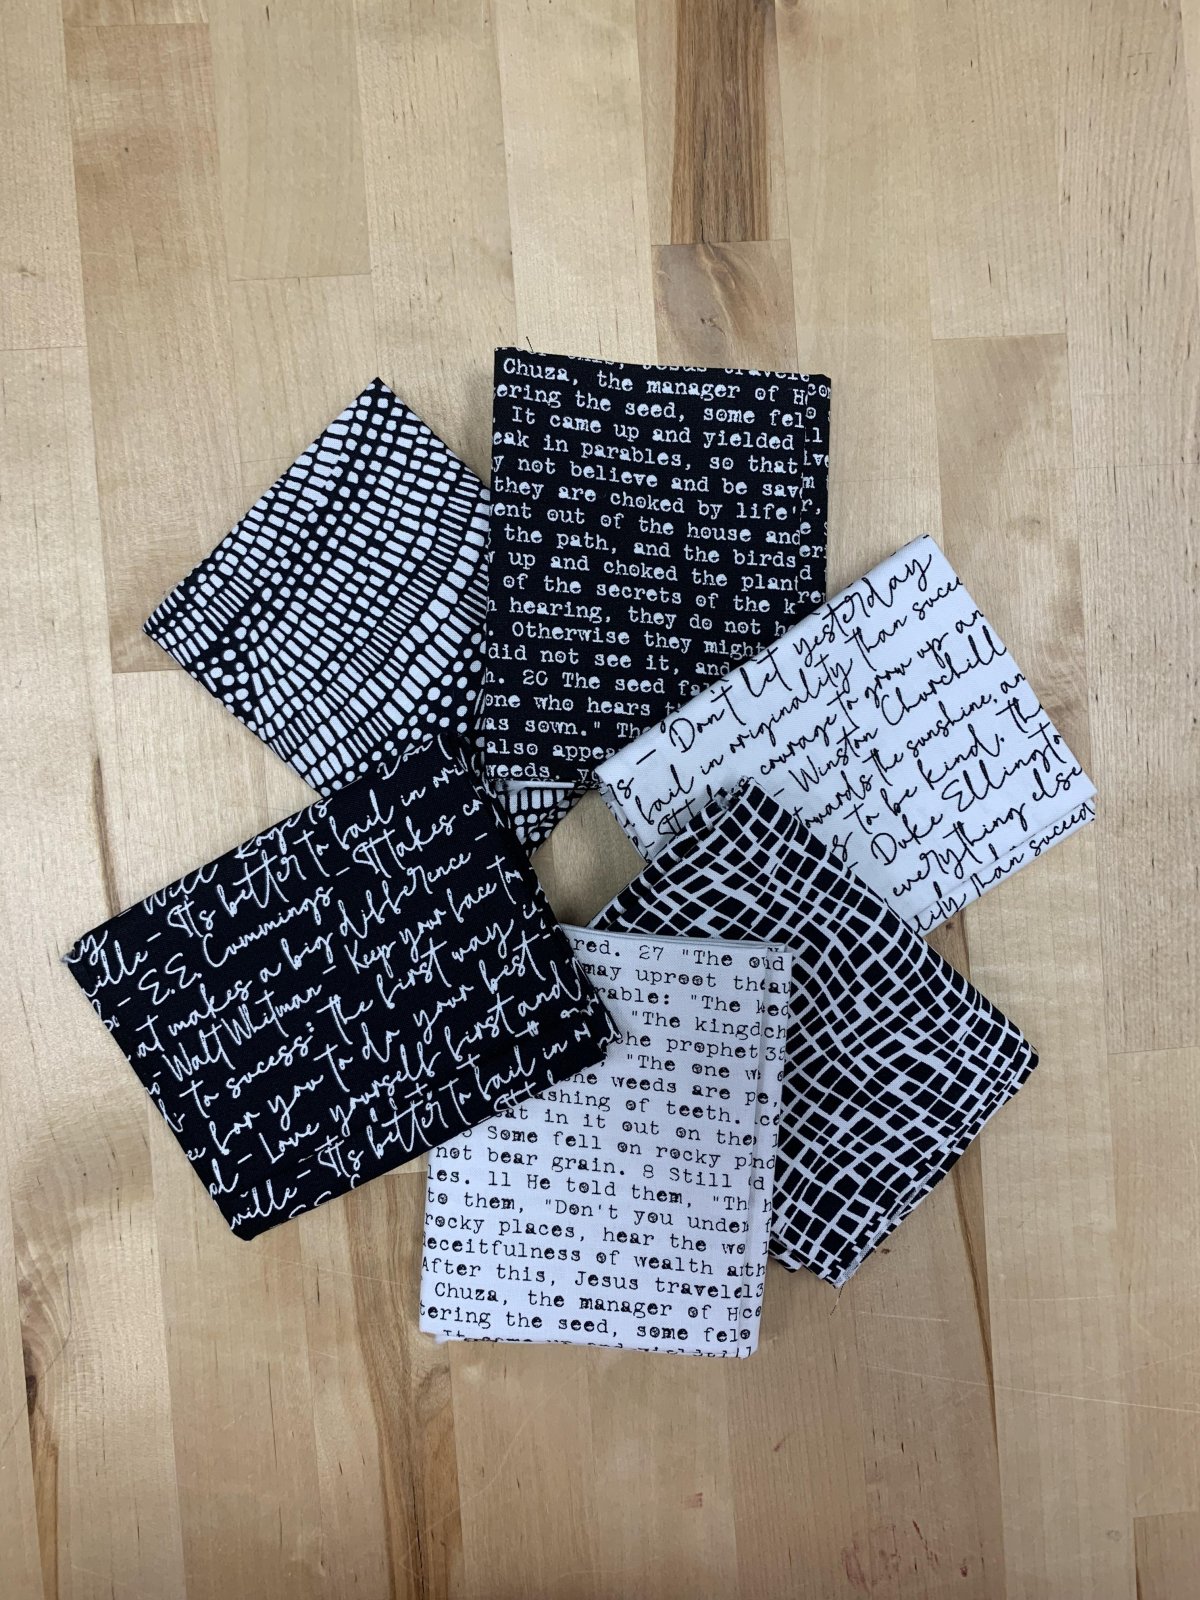 Jesus travele
Chuza, the manager of H
ering the seed, some fel
. It came up and yielded
eak in parables, so that
y not believe and be sav
they are choked by life'
went out of the house and
the path, and the birds
up and choked the plant
of the secrets of the k
hearing, they do not h
. Otherwise they might
did not see it, and
h. 20 The seed fa
one who hears t
as sown." The
also appea
weeds. yo
– Don't let yesterday
fail in originality than succe
courage to grow up an
– Winston Churchill
towards the sunshine, an
to be kind. Th
– Duke Ellington
everything else
ility than succeed
– Will Rogers
ville – It's better to fail in ori
– E.E. Cummings – It takes co
at makes a big difference –
– Walt Whitman – Keep your face to
to success: the first way
for you to do your best –
– Love yourself first and
ville – It's better to fail in
red. 27 "The
may uproot the
rable: "The
"The kingd
the prophet
, "The one w
he weeds are
ashing of teeth.
at in it out on the
Some fell on rocky p
not bear grain. 8 Still
les. 11 He told them, "Th
to them, "Don't you under
rocky places, hear the wo
deceitfulness of wealth a
After this, Jesus travele
Chuza, the manager of H
tering the seed, some fel